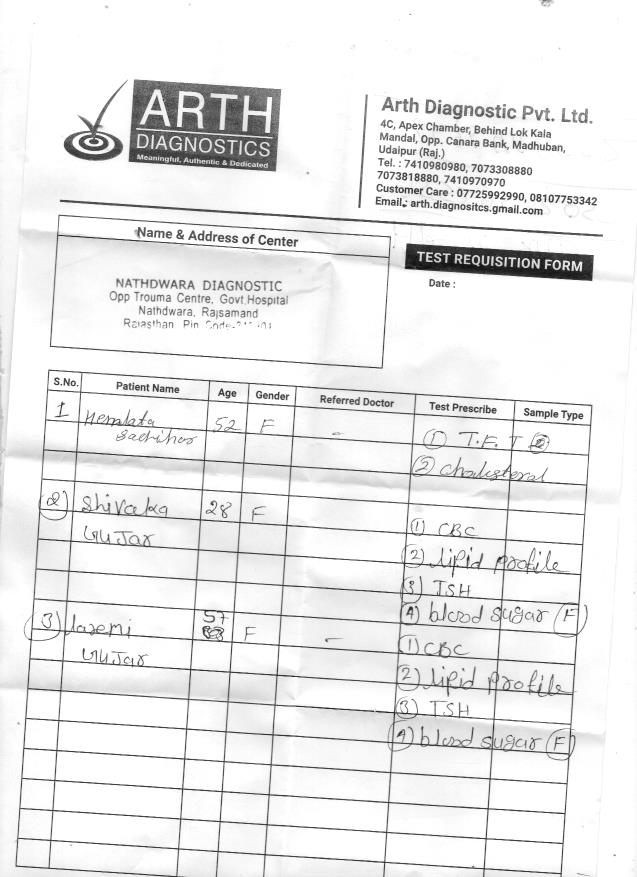 ARTH
DIAGNOSTICS
Meaningful, Authentic & Dedicated
Arth Diagnostic Pvt. Ltd.
4C, Apex Chamber, Behind Lok Kala
Mandal, Opp. Canara Bank, Madhuban,
Udaipur (Raj.)
Tel. : 7410980980, 7073308880
7073818880, 7410970970
Customer Care : 07725992990, 08107753342
Email : arth.diagnositcs.gmail.com
Name & Address of Center
NATHDWARA DIAGNOSTIC
Opp Trouma Centre, Govt.Hospital
Nathdwara, Rajsamand
Rajasthan, Pin Code-
TEST REQUISITION FORM
Date :
S.No. Patient Name Age Gender Referred Doctor Test Prescribe Sample Type
1 Hemlata 52 F - ① T.F.T
② Cholisteral
② Shivaka 28 F ① CBC
Gujar ② lipid profile
③ TSH
④ blood sugar (F)
③ 57 F - ① CBC
Gujar ② lipid profile
③ TSH
④ blood sugar (F)